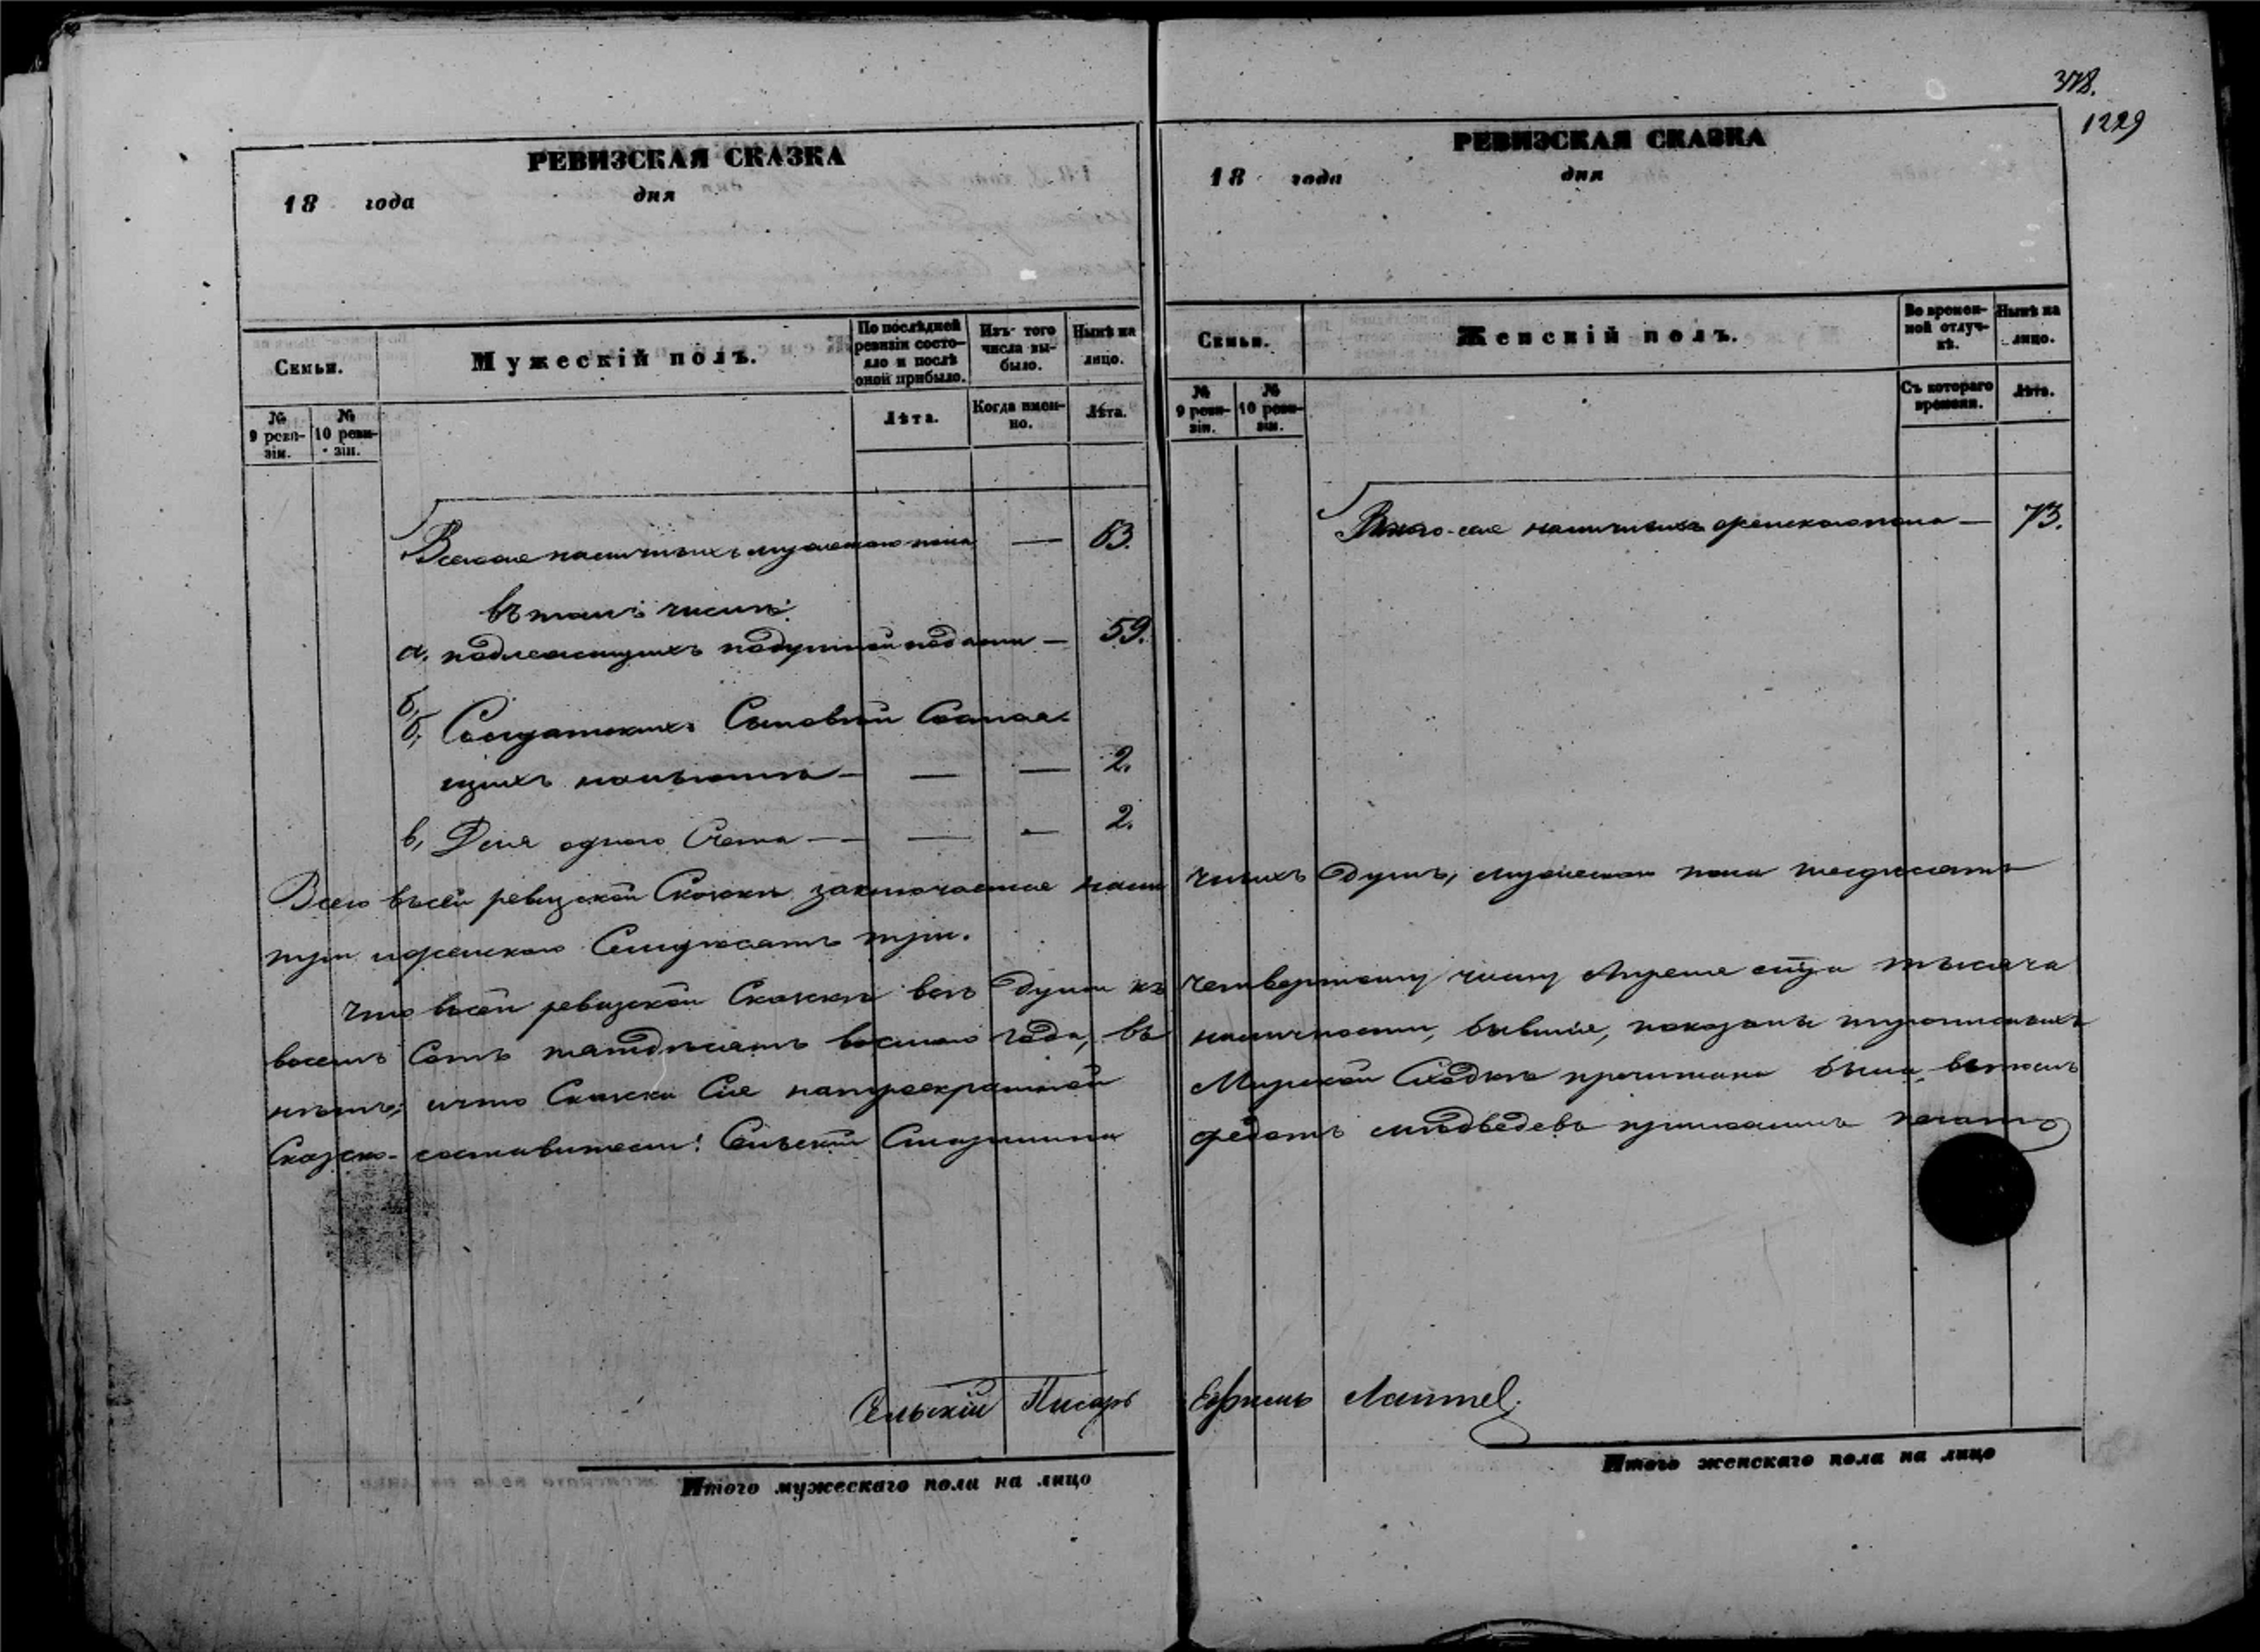 378.
1229
РЕВИЗСКАЯ СКАЗКА
18 года дня
Семьи.
Мужескій полъ.
По послѣдней ревизіи состояло и послѣ оной прибыло.
Изъ того числа выбыло.
Нынѣ на лицо.
№ 9 ревизіи.
№ 10 ревизіи.
Лѣта.
Когда именно.
Лѣта.
Всего же наличныхъ мужескаго пола — 63.
въ томъ числѣ:
а, подлежащихъ подушной подати — 59.
б, Солдатскихъ Сыновей Состоя-
щихъ на — — — 2.
в, Для одного Счета — — — 2.
РЕВИЗСКАЯ СКАЗКА
18 года дня
Семьи.
Женскій полъ.
Во временной отлучкѣ.
Нынѣ на лицо.
№ 9 ревизіи.
№ 10 ревизіи.
Съ котораго времени.
Лѣта.
Всего же наличныхъ женскаго пола — 73.
Всего въ сей ревизской Сказкѣ заключается наличныхъ душъ, мужескаго пола шесдесятъ
три и женскаго Семдесятъ три.
Что въ сей ревизской Сказкѣ всѣ души къ четвертому числу Апреля тысяча
восемь Сотъ пятдѣсятъ восмаго года, въ наличности, бывшіе, показаны и прописныхъ
нѣтъ; и что Сказка Сія на троекратной Мирской Сходкѣ прочитана была, въ томъ
Сказко-составители: Сельскій Старшина Федотъ Медведевъ приложилъ печать
Сельскій Писарь Ефимъ Лаптев
Итого мужескаго пола на лицо
Итого женскаго пола на лицо